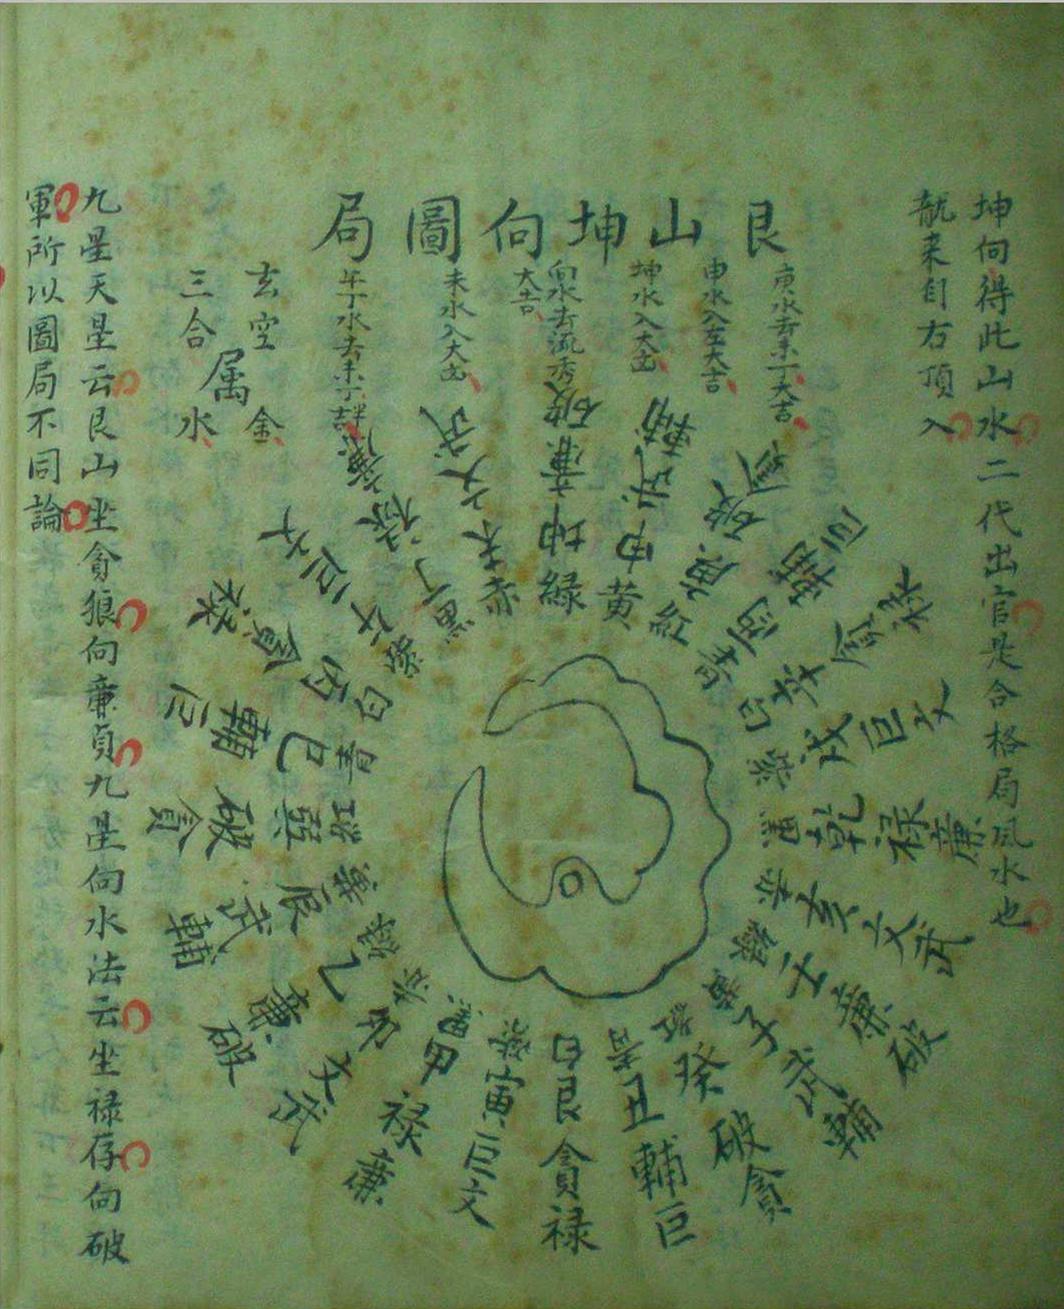 坤向得此山水二代出官是合格局风水也
龍来自右頂入
艮山坤向圖局
庚水去未丁大吉
申水入左大吉
坤水入大凶
向水去流秀
大吉
未水入大凶
午丁水去未丁吉
玄空
三合
属
金
水
九星天星云艮山坐貪狼向亷貞九星向水法云坐禄存向破
軍所以圖局不同論
綠坤亷破
黄申武輔
紅庚破貪
酉輔巨
白辛貪禄
戌巨文
乾禄亷
亥文武
壬亷破
子武輔
癸破貪
黑丑輔巨
白艮貪禄
寅巨文
甲禄亷
卯文武
乙亷破
辰武輔
巽破貪
巳輔巨
白丙貪禄
午巨文
黑丁禄亷
赤未文武